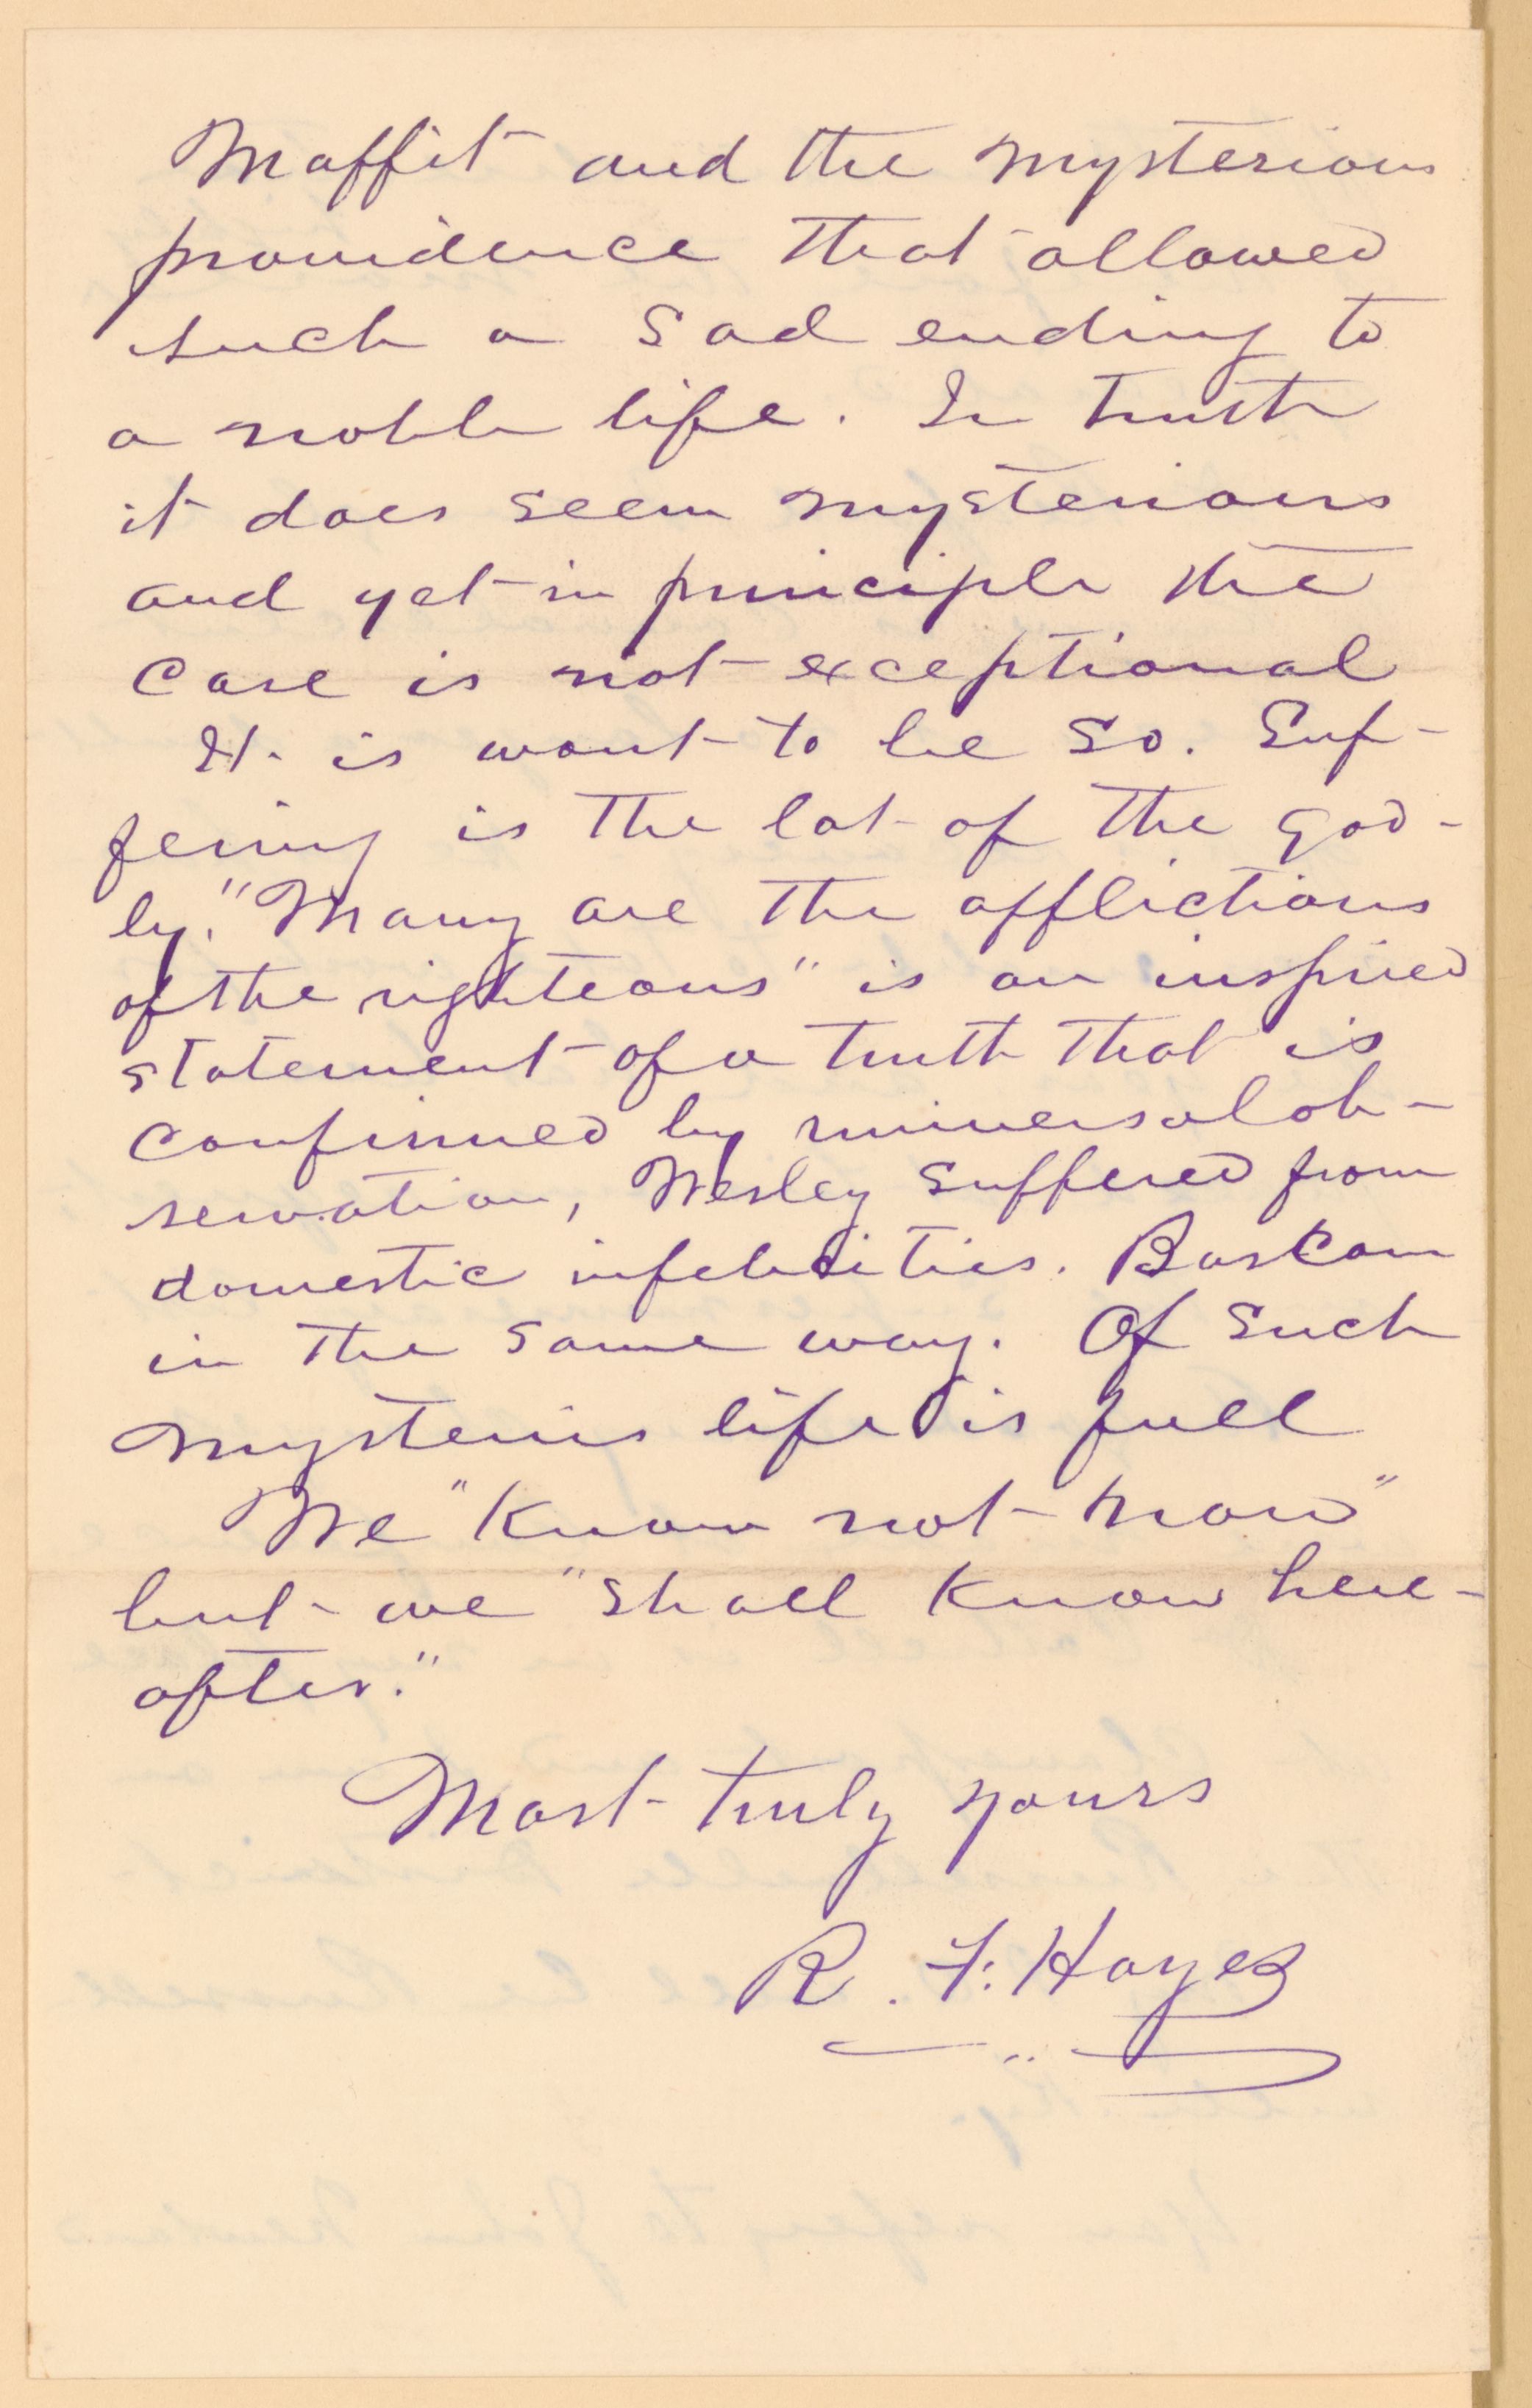 Maffit and the mysterious
providence that allowed
such a sad ending to
a noble life. In truth
it does seem mysterious
and yet in principle the
case is not exceptional
It is wont to be so. Suf-
fering is the lot of the god-
ly. "Many are the afflictions
of the righteous" is an inspired
statement of a truth that is
confirmed by universal ob-
servation, Wesley suffered from
domestic infelicities. Bascom
in the same way. Of such
mysteries life is full
We "know not now"
but we "shall know here-
after."
Most truly yours
R. F. Hayes